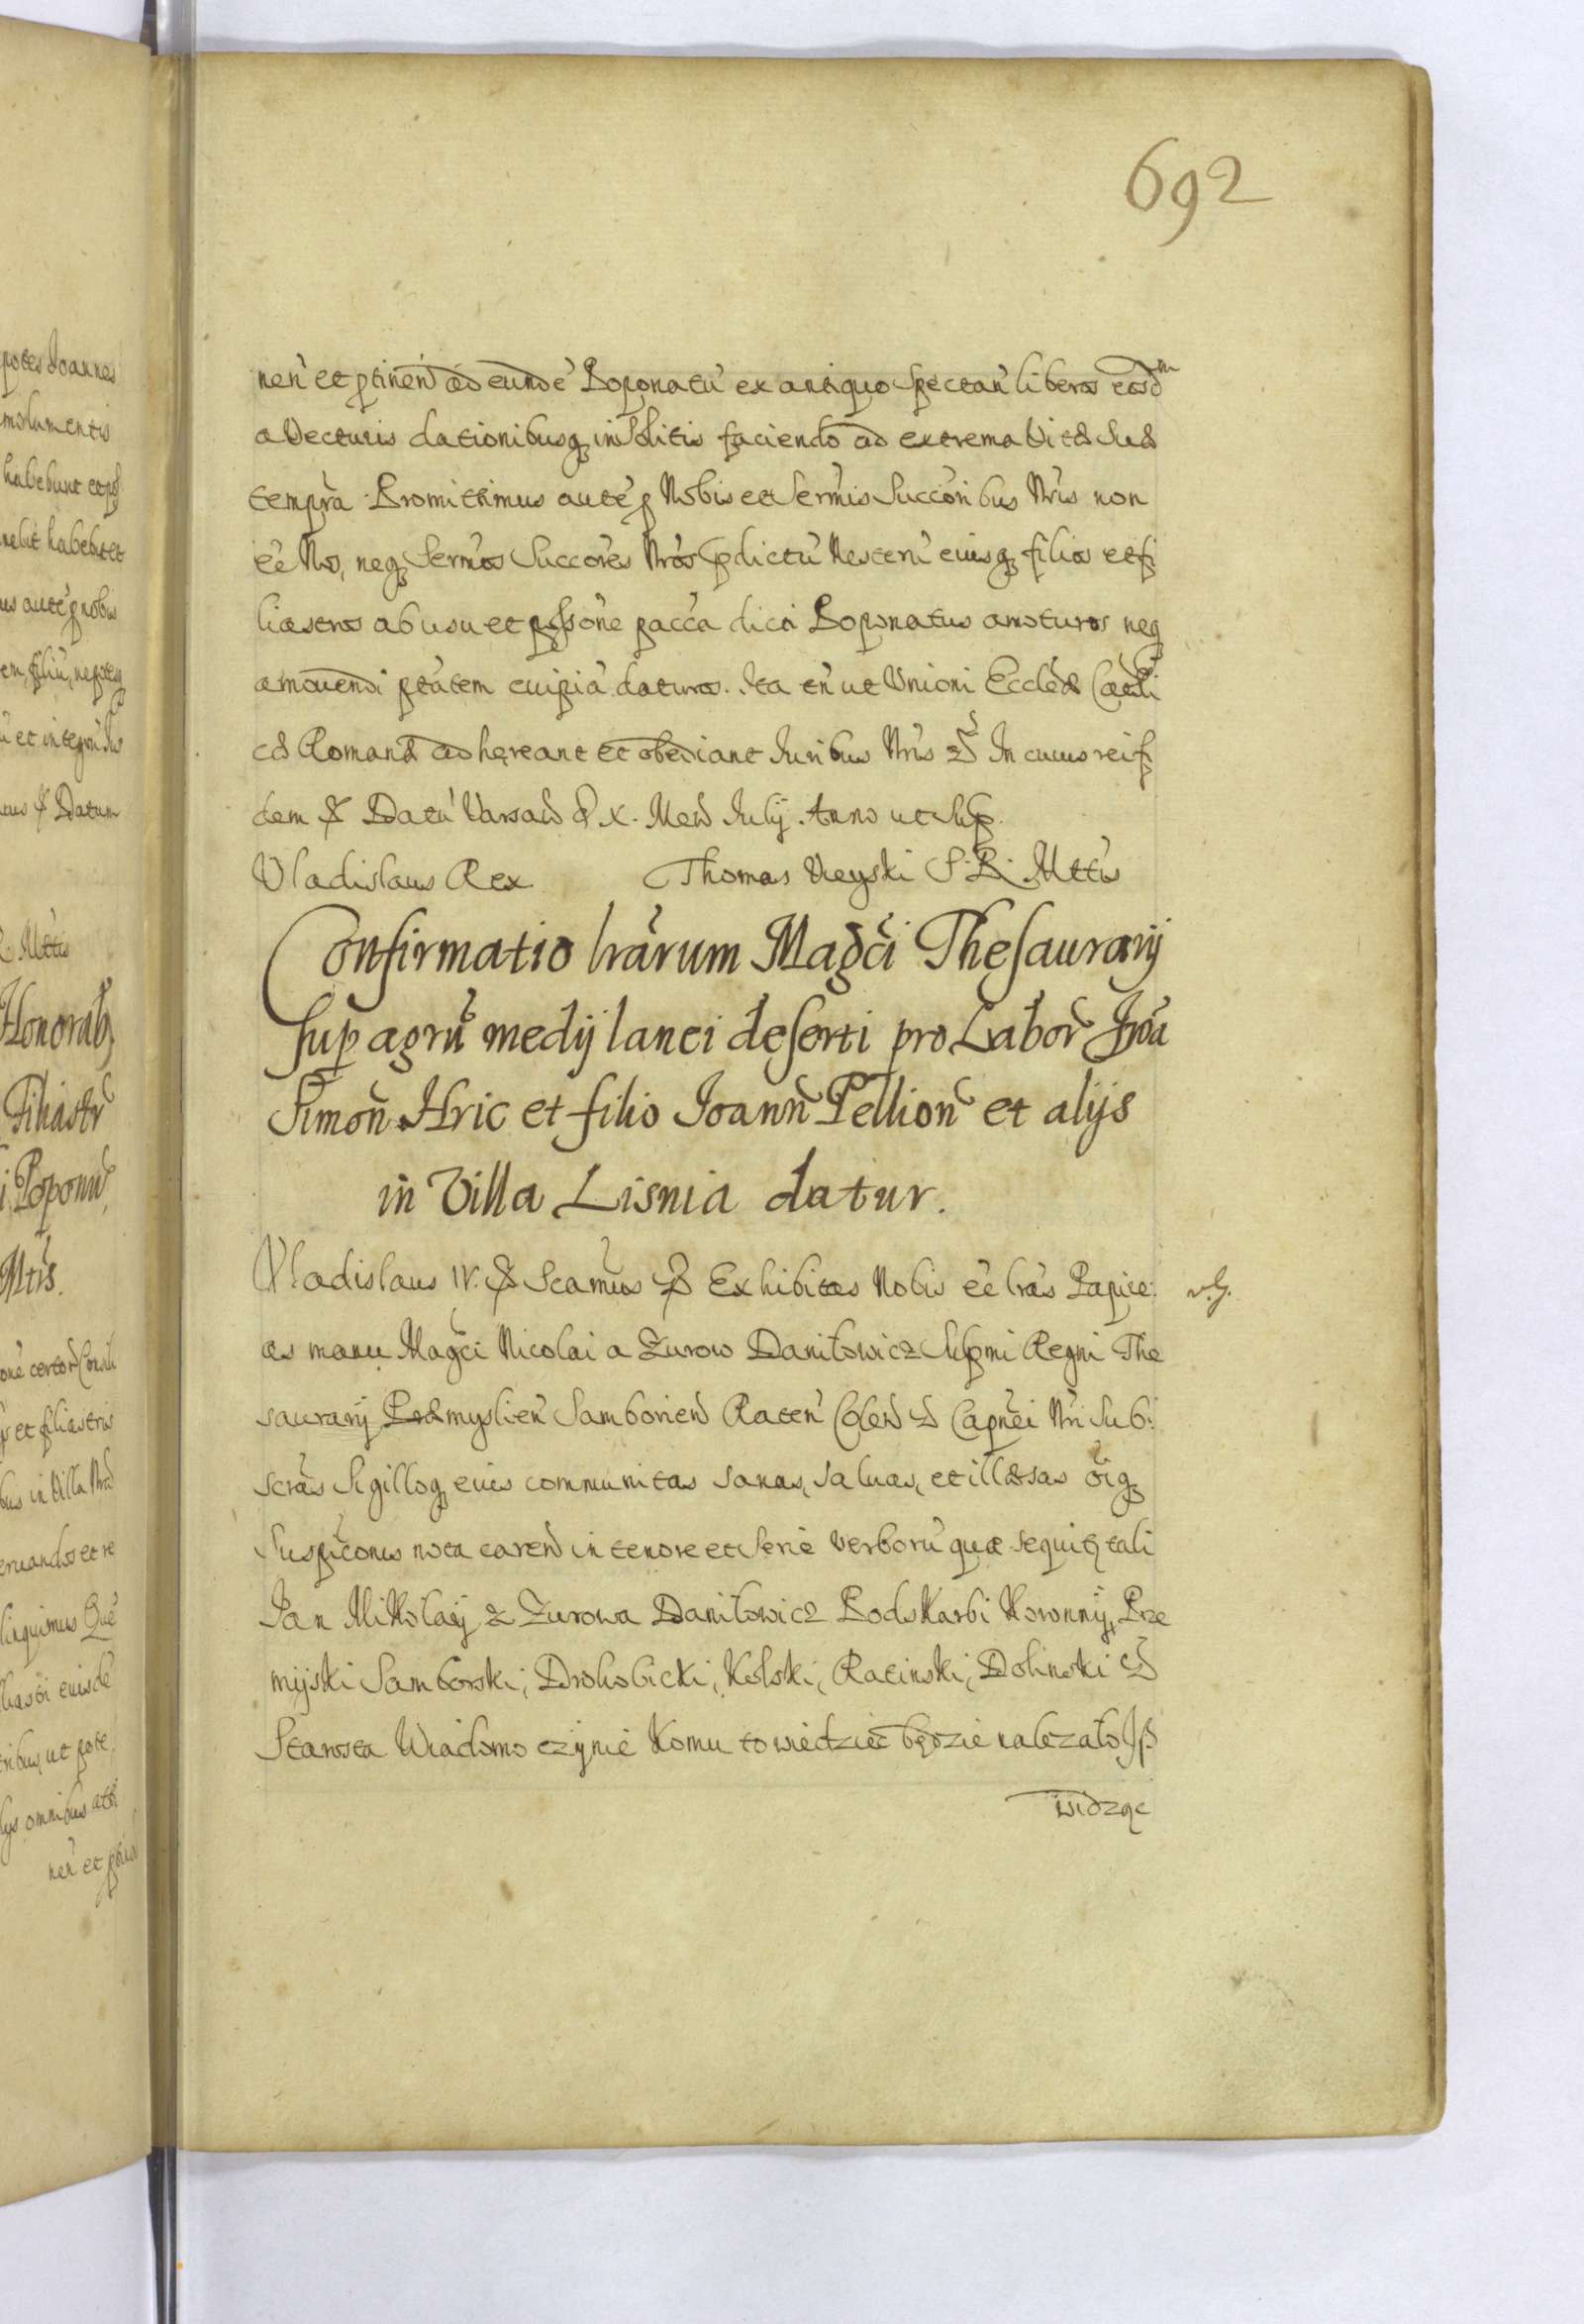 692
nen̄ et ptinen̄ ad eundē Poponatū ex antiquo spectan̄ liberos eosdm
a Vecturis dationibusq insolitis faciendo ad extrema Vitæ Suæ
tempra Promittimus autē p Nobis et Sermis Succoribus Nris non
ēe Nos, neq Sermos Succores Nros pdictū Nesterū eiusq filios et fi
liastros ab usu et pssone pacca dicti Poponatus amoturos neq
amovendi ptatem cuipiā daturos. Ita tn̄ ut Unioni Ecclēæ Catholi
cæ Romanæ adhęreant et obediant Iuribus Nris & In cuius rei fi
dem & Datū Varsaw d X. Mens Iulij. Anno ut Sup.
Vladislaus Rex Thomas Uieyski S. R. Mttis
Confirmatio lrarum Magci Thesaurarij
sup agrū medij lanei deserti pro Labor
Simon Hric et filio Ioann Pellion et alijs
in Villa Lisnia datur.
Vladislaus IV. & Scamus & Exhibitas Nobis ēe lras Papire:
as manu Magci Nicolai a Zurow Daniłowicz Supmi Regni The
saurarij Præmyslien̄ Samborien Raten̄ Colen & Capnei Nri Sub:
scras Sigilloq eius communitas sanas, saluas, et illæsas oiq
Suspiconis nota caren in tenore et serie verborū quæ sequitz tali
Jan Mikołaij z Zurowa Daniłowicz Podskarbi Koronnij, Prze
mijski Samborski, Drohobicki, Kolski, Ratinski, Dolinski &
Starosta Wiadomo czijnie Komu to wiedziec będzie należało Iß
widząc